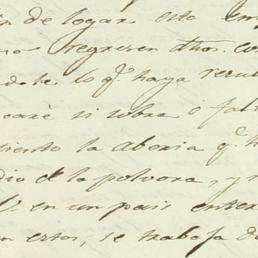 de logar esto em
no regresen dhos. co
dole lo q.e haya resu
caré si sobra ó fal
iento la aberia q.e h
dio de la polvora, y
V. en un pais enter
n estos, se trabaja d